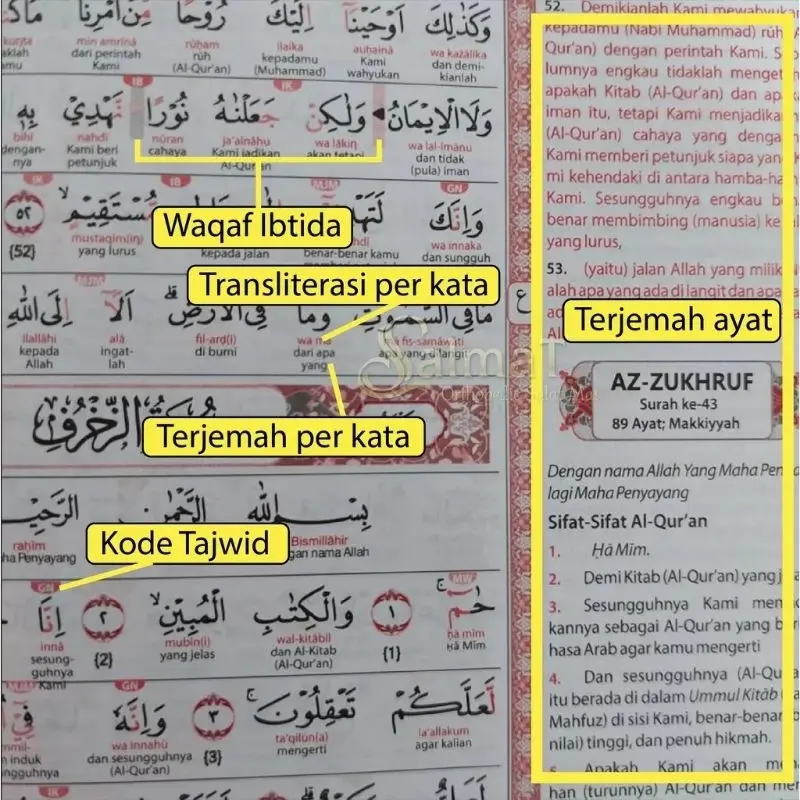 وَكَذٰلِكَ اَوْحَيْنَآ اِلَيْكَ رُوْحًا مِّنْ اَمْرِنَا
wa każālika auḥainā ilaika rūḥam min amrinā
dan demi- kianlah Kami wahyukan kepadamu (Muhammad) rūh (Al-Qur'an) dari perintah Kami
IB IK
وَلَا الْاِيْمَانُ وَلٰكِنْ جَعَلْنٰهُ نُوْرًا نَّهْدِيْ بِهٖ
wa lal-īmānu wa lākin ja'alnāhu nūran nahdī bihī
dan tidak (pula) iman akan tetapi Kami jadikan Al-Qur'an cahaya Kami beri petunjuk dengan- nya
Waqaf Ibtida
IK IB MJM GN
وَاِنَّكَ مُّسْتَقِيْمٍ ۙ ٥٢
wa innaka mustaqīm(in)
dan sungguh benar-benar kamu kepada jalan yang lurus {52}
Transliterasi per kata
MJM
مَا فِى السَّمٰوٰتِ وَمَا فِى الْاَرْضِۗ اَلَآ اِلَى اللّٰهِ
mā fis-samāwāti wa mā fil-arḍ(i) alā ilallāhi
apa yang dilangit dari apa yang di bumi ingat- lah kepada Allah
سُوْرَةُ الزُّخْرُفِ
Terjemah per kata
بِسْمِ اللّٰهِ الرَّحْمٰنِ
Bismillāhir
gan nama Allah
Kode Tajwid
GN MW
حٰمۤ ۚ ١ وَالْكِتٰبِ الْمُبِيْنِ ۙ ٢ اِنَّا
ḥā mīm wal-kitābil mubīn(i) innā
Ḥā Mīm {1} dan Al-Kitab (Al-Qur'an) yang jelas {2} sesung- guhnya Kami
MJM GN
لَّعَلَّكُمْ تَعْقِلُوْنَ ۚ ٣ وَاِنَّهٗ فِيْٓ
la'allakum ta'qilūn(a) wa innahū
agar kalian mengerti {3} dan sesungguhnya (Al-Qur'an)
IK
Samat
52. Demikianlah Kami mewahyukan
kepadamu (Nabi Muhammad) rūḥ (A
Qur'an) dengan perintah Kami. S
lumnya engkau tidaklah menget
apakah Kitab (Al-Qur'an) dan ap
iman itu, tetapi Kami menjadikan
(Al-Qur'an) cahaya yang denga
Kami memberi petunjuk siapa yan
mi kehendaki di antara hamba-ha
Kami. Sesungguhnya engkau
benar membimbing (manusia) ke
yang lurus,
53. (yaitu) jalan Allah yang milik
alah apa yang ada di langit dan apa
Terjemah ayat
AZ-ZUKHRUF
Surah ke-43
89 Ayat; Makkiyyah
Dengan nama Allah Yang Maha Pen
lagi Maha Penyayang
Sifat-Sifat Al-Qur'an
1. Ḥā Mīm.
2. Demi Kitab (Al-Qur'an) yang
3. Sesungguhnya Kami men
kannya sebagai Al-Qur'an yang
hasa Arab agar kamu mengerti
4. Dan sesungguhnya (Al-Qu
itu berada di dalam Ummul Kitāb
Mahfuz) di sisi Kami, benar-benar
nilai) tinggi, dan penuh hikmah.
5. Apakah Kami akan
han (turunnya) Al-Qur'an dan